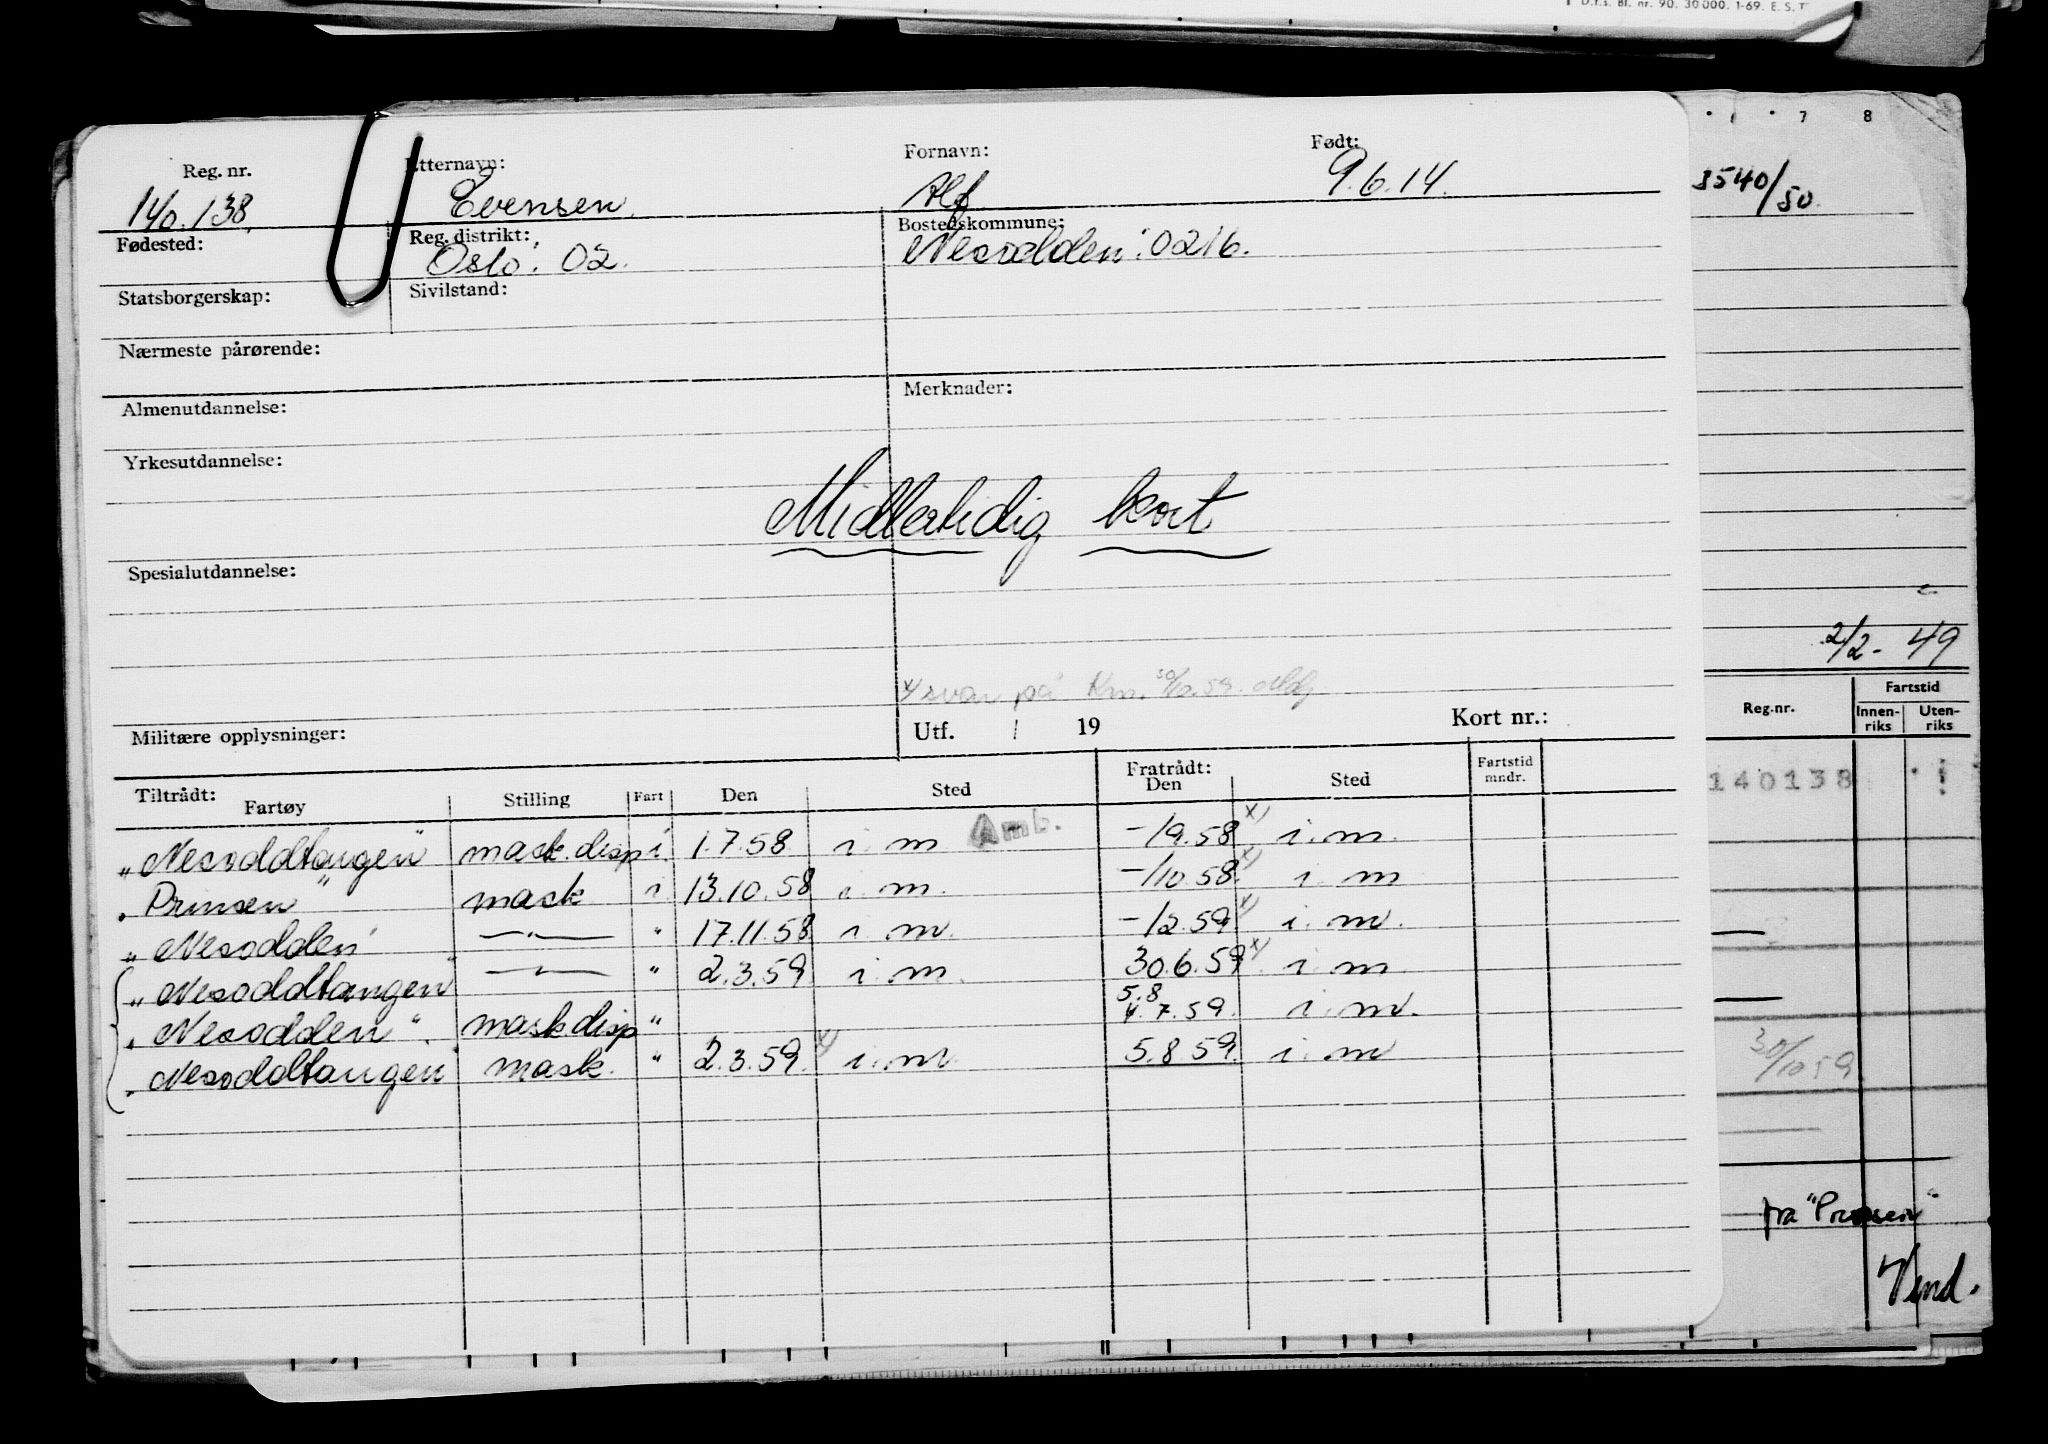 D.f.s. Bl. nr. 90. 30 000. 1-69. E. S. T
7 8
Reg. nr. Etternavn: Fornavn: Født:
140.138. Evensen. Alf 9.6.14.
3540/50.
Fødested: Reg. distrikt: Bostedskommune:
Oslo. 02. Nesodden: 0216.
Statsborgerskap: Sivilstand:
Nærmeste pårørende:
Almenutdannelse: Merknader:
Yrkesutdannelse:
Midlertidig kort
Spesialutdannelse:
2/2- 49
x) svar på 30/10.59.
Militære opplysninger: Utf. / 19 Kort nr.:
Reg.nr. Fartstid
Innen-riks Uten-riks
Tiltrådt: Fratrådt:
Fartøy Stilling Fart Den Sted Den Sted Fartstid mndr.
140138
"Nesoddtangen" mask.disp i. 1.7.58 i. m Amb. -/9.58 x) i. m.
"Prinsen" mask i. 13.10.58 i. m. -/10.58. x) i. m
"Nesodden" —"— " 17.11.58 i. m. -/2.59 x) i. m.
"Nesoddtangen" —"— " 2.3.59 i. m. 30.6.59 x) i. m
"Nesodden". mask.disp " 5.8 4.7.59. i. m.
"Nesoddtangen" mask. " 2.3.59. x) i. m. 5.8.59. i. m
30/10 59
fra "Prinsen"
Vend.